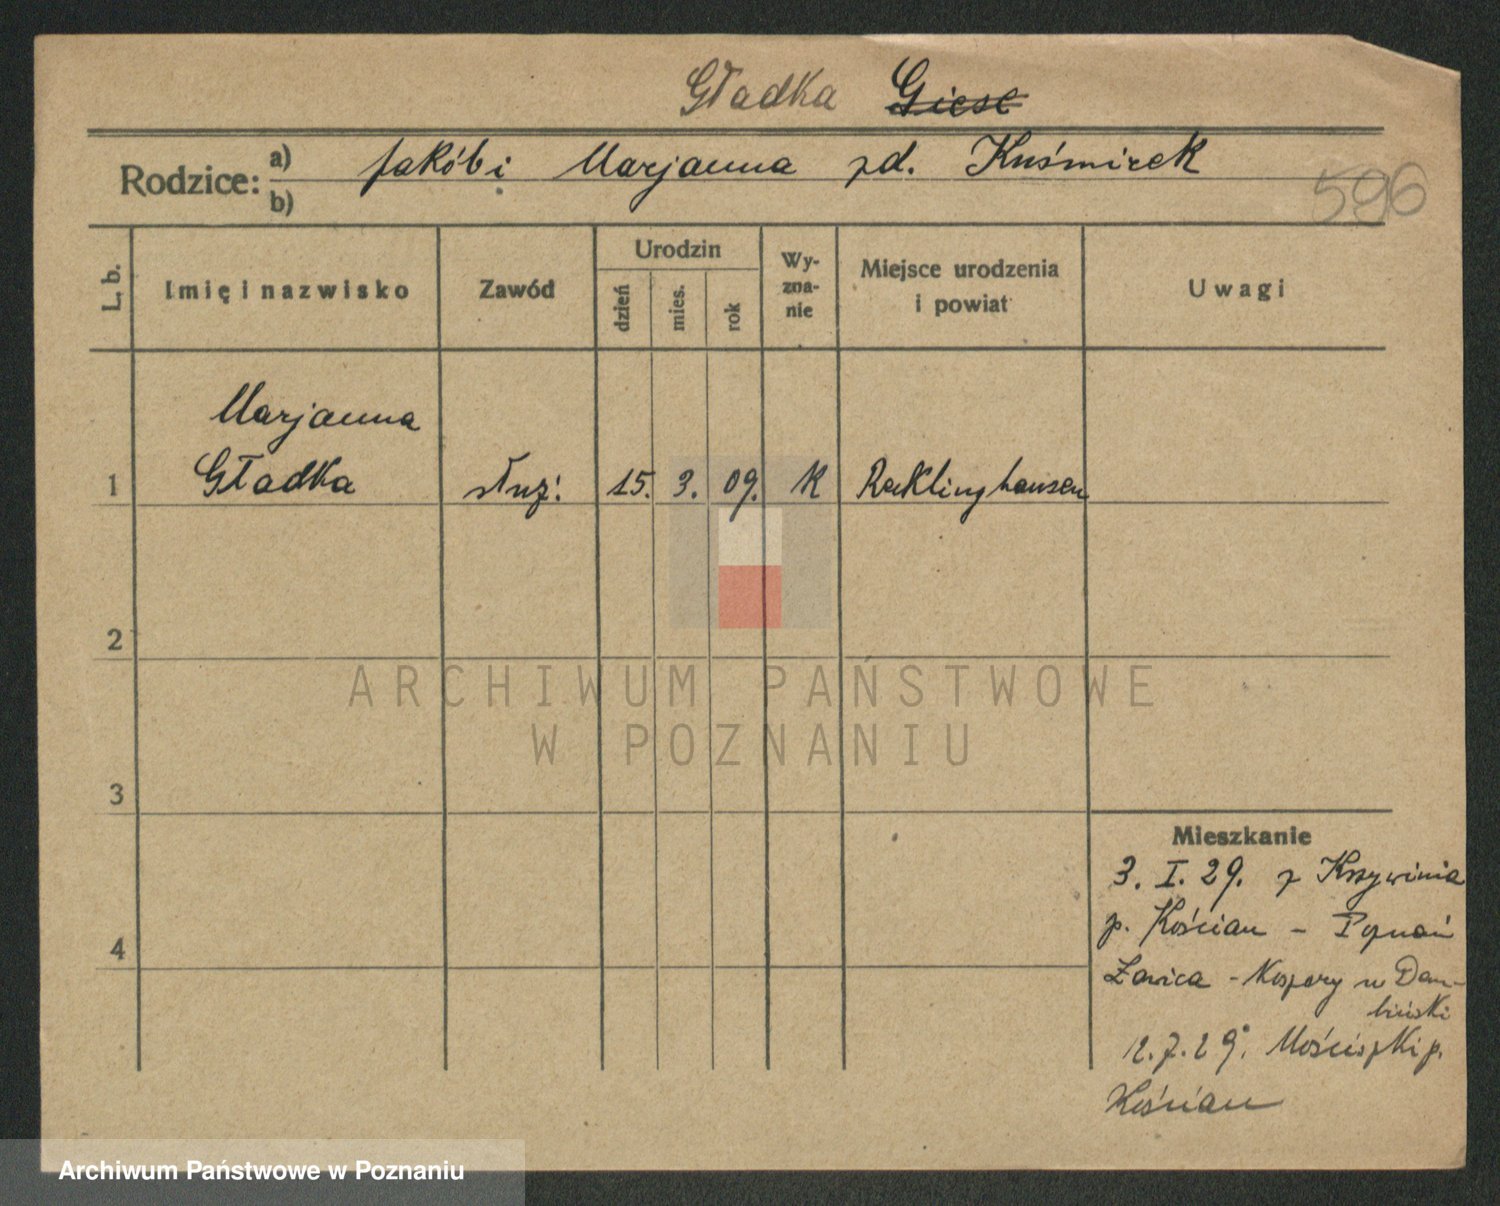 Gładka Giese
Rodzice: a) Jakób i Marjanna zd. Kuśmirek
b)
596
L. b.
Imię i nazwisko
Zawód
Urodzin
dzień
mies.
rok
Wy-
zna-
nie
Miejsce urodzenia
i powiat
Uwagi
Marjanna
1 Gładka służ. 15. 3. 09. K Reklinghausen
2
3
4
ARCHIWUM PAŃSTWOWE
W POZNANIU
Mieszkanie
3. I. 29. z Krzywinia
p. Kościan - Poznań
Ławica - Kospery u Dam-
biński
12.7.29. Mościszki p.
Kościan
Archiwum Państwowe w Poznaniu